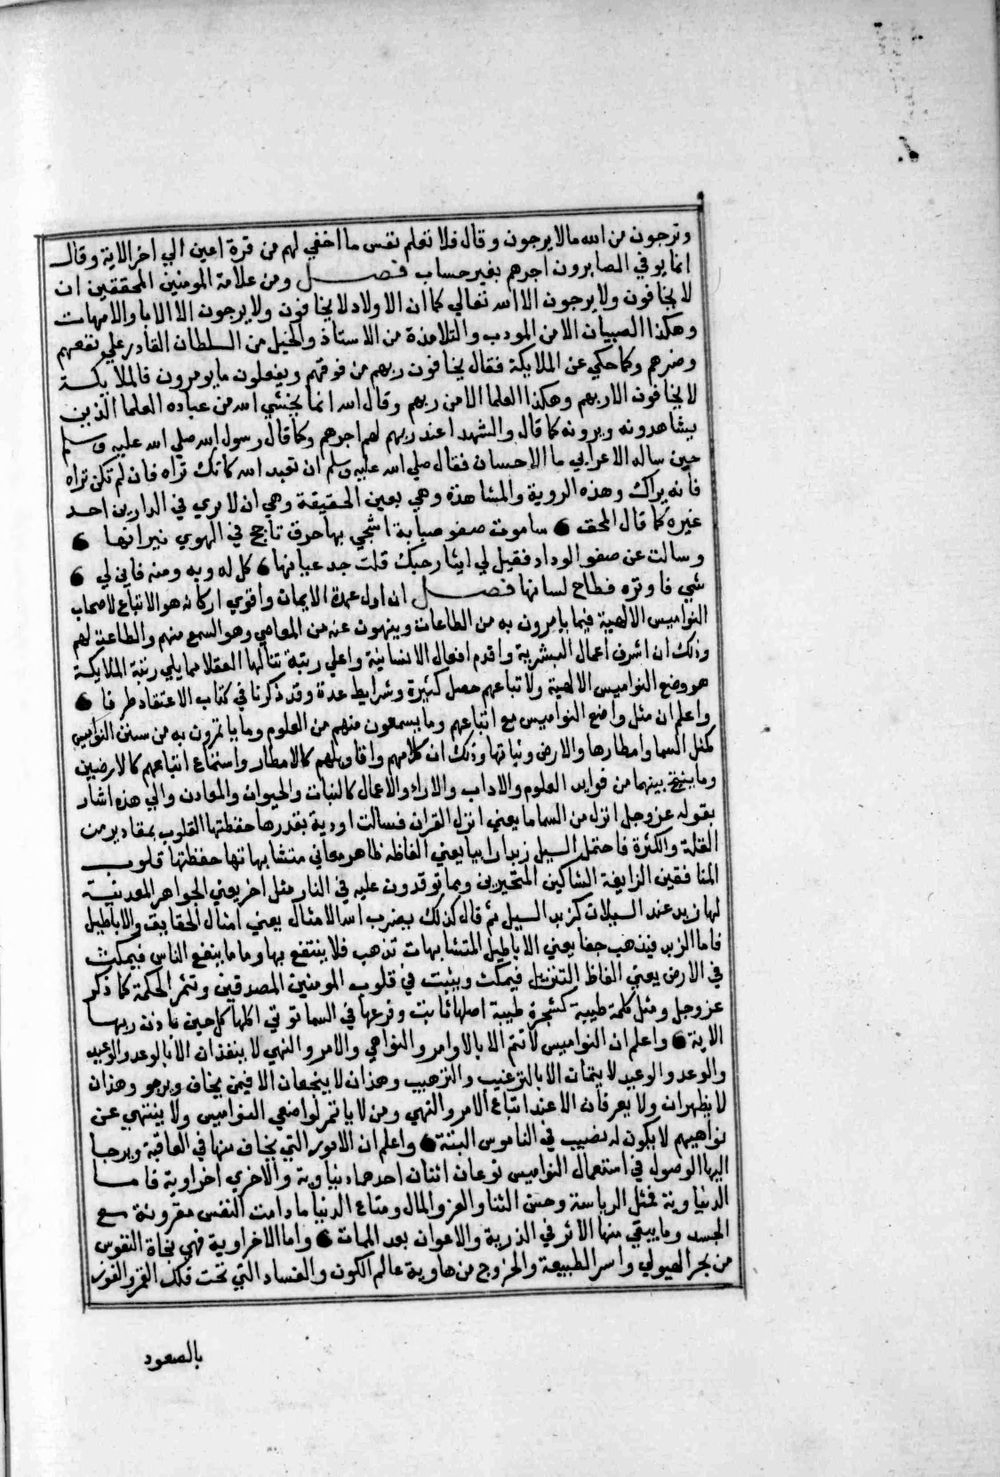 وترجون من الله مالا يرجون وقال فلا تعلم نفس ما اخفي لهم من قرة اعين الي اخر الاية وقال
انما يوفي الصابرون اجرهم بغير حساب فصل ومن علامة المومنين المحققين ان
لا يخافون ولا يرجون الا الله تعالي كما ان الاولاد لا يخافون ولا يرجون الا الابا والامهات
وهكذا الصبيان الا من المودب والتلامذة من الاستاذ والخيل من السلطان القادر علي نفعهم
وضرهم وكما حكي عن الملايكة فقال يخافون ربهم من فوقهم ويفعلون ما يومرون فالملايكة
لا يخافون الا ربهم وهكذا العلما الا من ربهم وقال الله انما يخشي الله من عباده العلما الذين
يشاهدونه ويرونه كما قال والشهدا عند ربهم لهم اجرهم وكما قال رسول الله صلي الله عليه وسلم
حين ساله الاعرابي ما الاحسان فقال صلي الله عليه وسلم ان تعبد الله كانك تراه فان لم تكن تراه
فانه يراك وهذه الروية والمشاهدة وهي بعين الحقيقة وهي ان لا يري في الدارين احد
غيره كما قال المحق ساموت صفو صبابة اشجي بها حرق تاجج في الهوي نيرانها
وسالت عن صفو الوداد فقيل لي ايثار حبك قلت جد عيانها كل له وبه ومنه فاني لي
شي فاوثره فطاح لسانها فصل ان اول عمدة الايمان واقوي اركانه هو الاتباع لاصحاب
النواميس الالهية فيما يامرون به من الطاعات وينهون عنه من المعاصي وهو السمع منهم والطاعة لهم
وذلك ان اشرف اعمال البشرية واقدم افعال الانسانية واعلي رتبة تنالها العقلا مما يلي رتبة الملايكة
هو وضع النواميس الالهية ولاتباعهم خصل كثيرة وشرايط عدة وقد ذكرنا في كتاب الاعتقاد طرفا
واعلم ان مثل واضع النواميس مع اتباعهم وما يسمعون منهم من العلوم وما ياتمرون به من سنن النواميس
كمثل السما وامطارها والارض ونباتها وذلك ان كلامهم واقاويلهم كالامطار واستماع اتباعهم كالارضين
وما ينتج بينهما من فوايد العلوم والاداب والاراء والاعمال كالنبات والحيوان والمعادن والي هذه اشار
بقوله عز وجل انزل من السما ما يعني انزل القران فسالت اودية بقدرها حفظتها القلوب بمقادير من
القلة والكثرة فاحتمل السيل زبدا رابيا يعني الفاظه ظاهر معاني متشابهاتها حفظتها قلوب
المنافقين الزايغة الشاكين المتحيرين ومما توقدون عليه في النار مثل اخر يعني الجواهر المعدنية
لها زبد عند السيلان كزبد السيل ثم قال كذلك يضرب الله الامثال يعني امثال الحقايق والاباطيل
فاما الزبد فيذهب جفا يعني الاباطيل المتشابهات تذهب فلا ينتفع بها وما ما ينفع الناس فيمكث
في الارض يعني الفاظ التنزيل فيمكث ويثبت في قلوب المومنين المصدقين وتثمر الحكمة كما ذكر
عز وجل ومثل كلمة طيبة كشجرة طيبة اصلها ثابت وفرعها في السما توتي اكلها كل حين باذن ربها
الاية واعلم ان النواميس لا تتم الا بالاوامر والنواهي والامر والنهي لا ينفذان الا بالوعد والوعيد
والوعد والوعيد لا يتمان الا بالترغيب والترهيب وهذان لا ينجعان الا فيمن يخاف ويرجو وهذان
لا يظهران ولا يعرفان الا عند اتباع الامر والنهي ومن لا ياتمر لواضعي النواميس ولا ينتهي عن
نواهيهم لا يكون له نصيب في الناموس البتة واعلم ان الامور التي يخاف منها في العاقبة ويرجا
اليها الوصول في استعمال النواميس نوعان اثنان احدهما دنياوية والاخري اخراوية فاما
الدنياوية فمثل الرياسة وحسن الثنا والعز والمال ومتاع الدنيا مادامت النفس مقرونة مع
الجسد وما يبقي منها الاثر في الذرية والاعوان بعد الممات واما الاخراوية فهي نجاة النفوس
من بحر الهيولي واسر الطبيعة والخروج من هاوية عالم الكون والفساد التي تحت فلك القمر والفوز
بالصعود